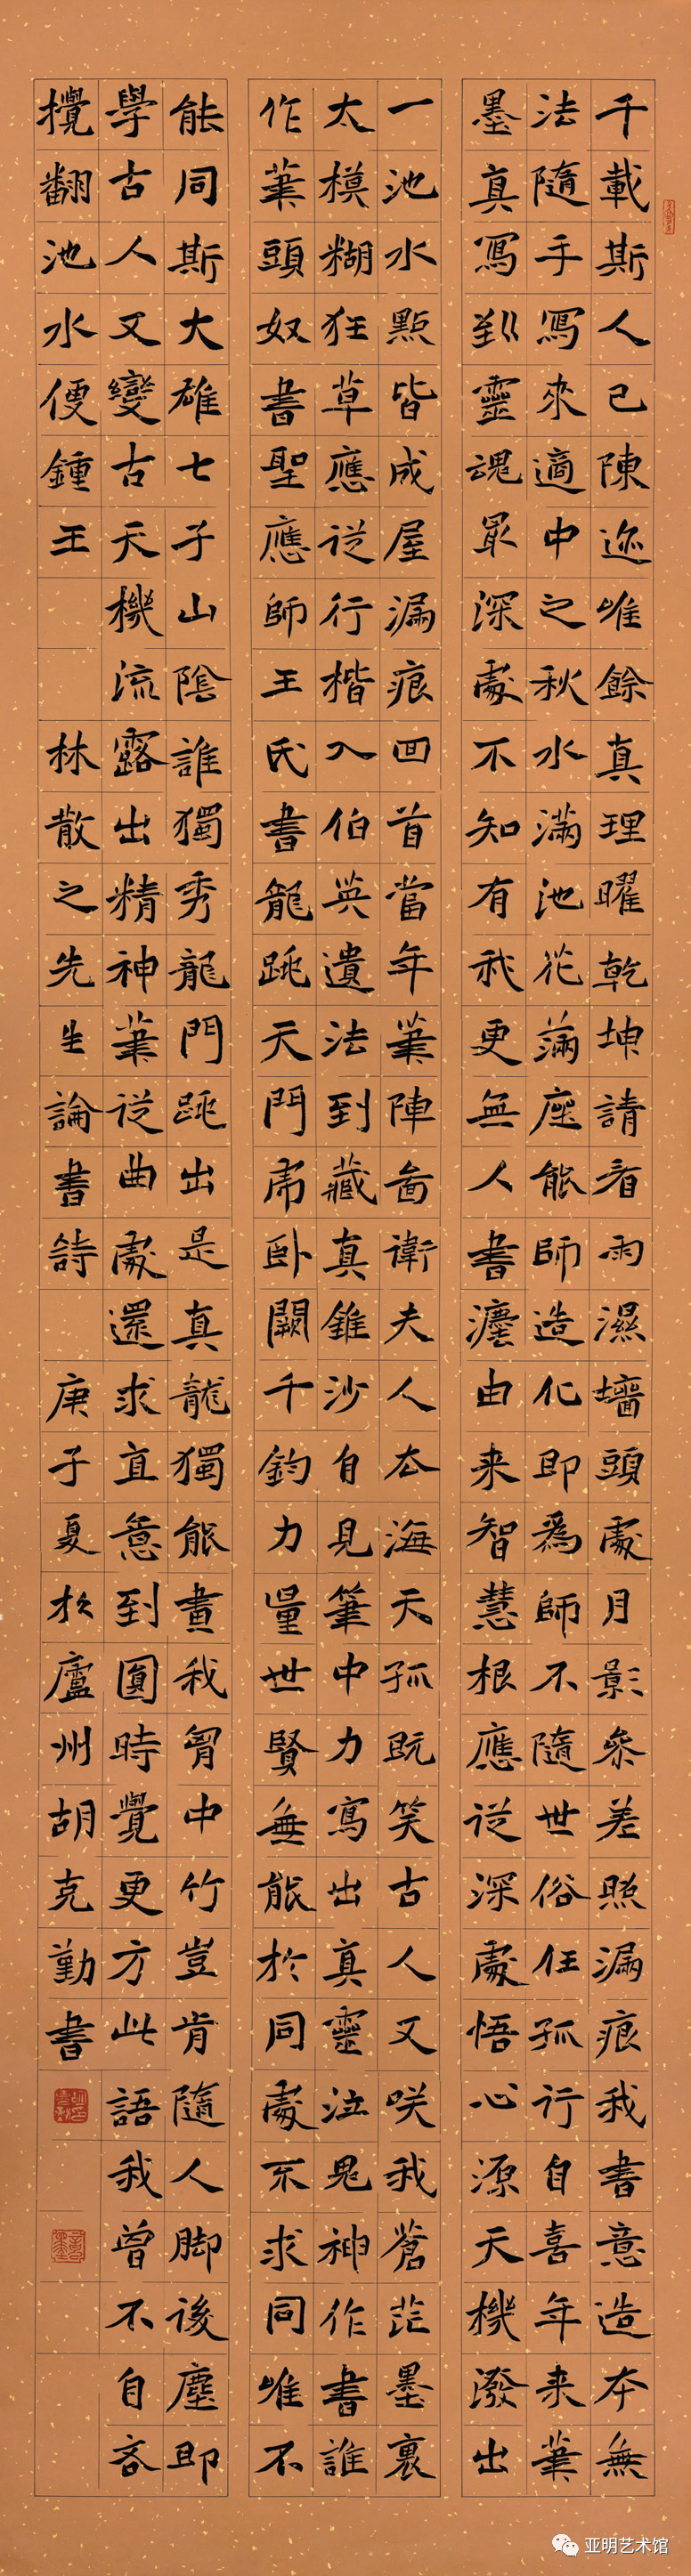 千載斯人已陳迹唯餘真理曜乾坤請看雨濕墻頭處月影參差照漏痕我書意造本無
法隨手寫來適中之秋水滿池花滿座能師造化即爲師不隨世俗任孤行自喜年来筆
墨真寫到靈魂最深處不知有我更無人書灋由来智慧根應從深處悟心源天機潑出
一池水點皆成屋漏痕回首當年筆陣啚衛夫人去海天孤既笑古人又咲我蒼茫墨裏
太模糊狂草應從行楷入伯英遺法到藏真錐沙自見筆中力寫出真靈泣鬼神作書誰
作筆頭奴書聖應師王氏書龍跳天門虎卧闕千鈞力量世賢無能於同處不求同唯不
能同斯大雄七子山陰誰獨秀龍門跳出是真龍獨能畫我胷中竹豈肯隨人脚後塵即
學古人又變古天機流露出精神筆從曲處還求直意到圓時覺更方此語我曾不自吝
攪翻池水便鍾王 林散之先生論書詩 庚子夏於廬州胡克勤書
亚明艺术馆